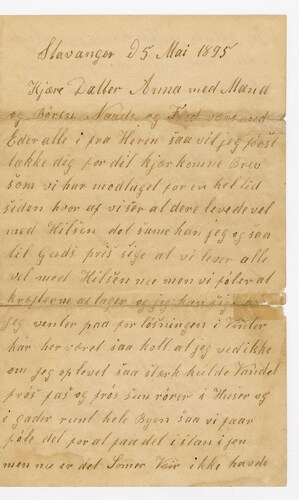 Stavanger d 5 Mai 1895
Kjære Datter Anna med Mand
og Børen Naade og Fred være med
Eder alle i fra Heren saa vil jeg først
takke deg for dit kjærkomne Brev
som vi har modtaget for en hel tid
siden hvor af vi ser at dere leve de vel
med Hilsen det same kan jeg og saa
til Guds pris sige at vi lever alle
vel med Hilsen nu men vi føler at
kræfterne aftager og jeg kan sige
jeg venter paa forløsningen i Vinter
har her været saa kolt at jeg ved ikke
om jeg oplevet saa stærk kulde Vandet
frøs fast og frøs sun rører i Huser og
i gader runt hele Byen saa vi faar
føle det for at faa det i stan i jen
men nu er det Somer Vær ikke havde